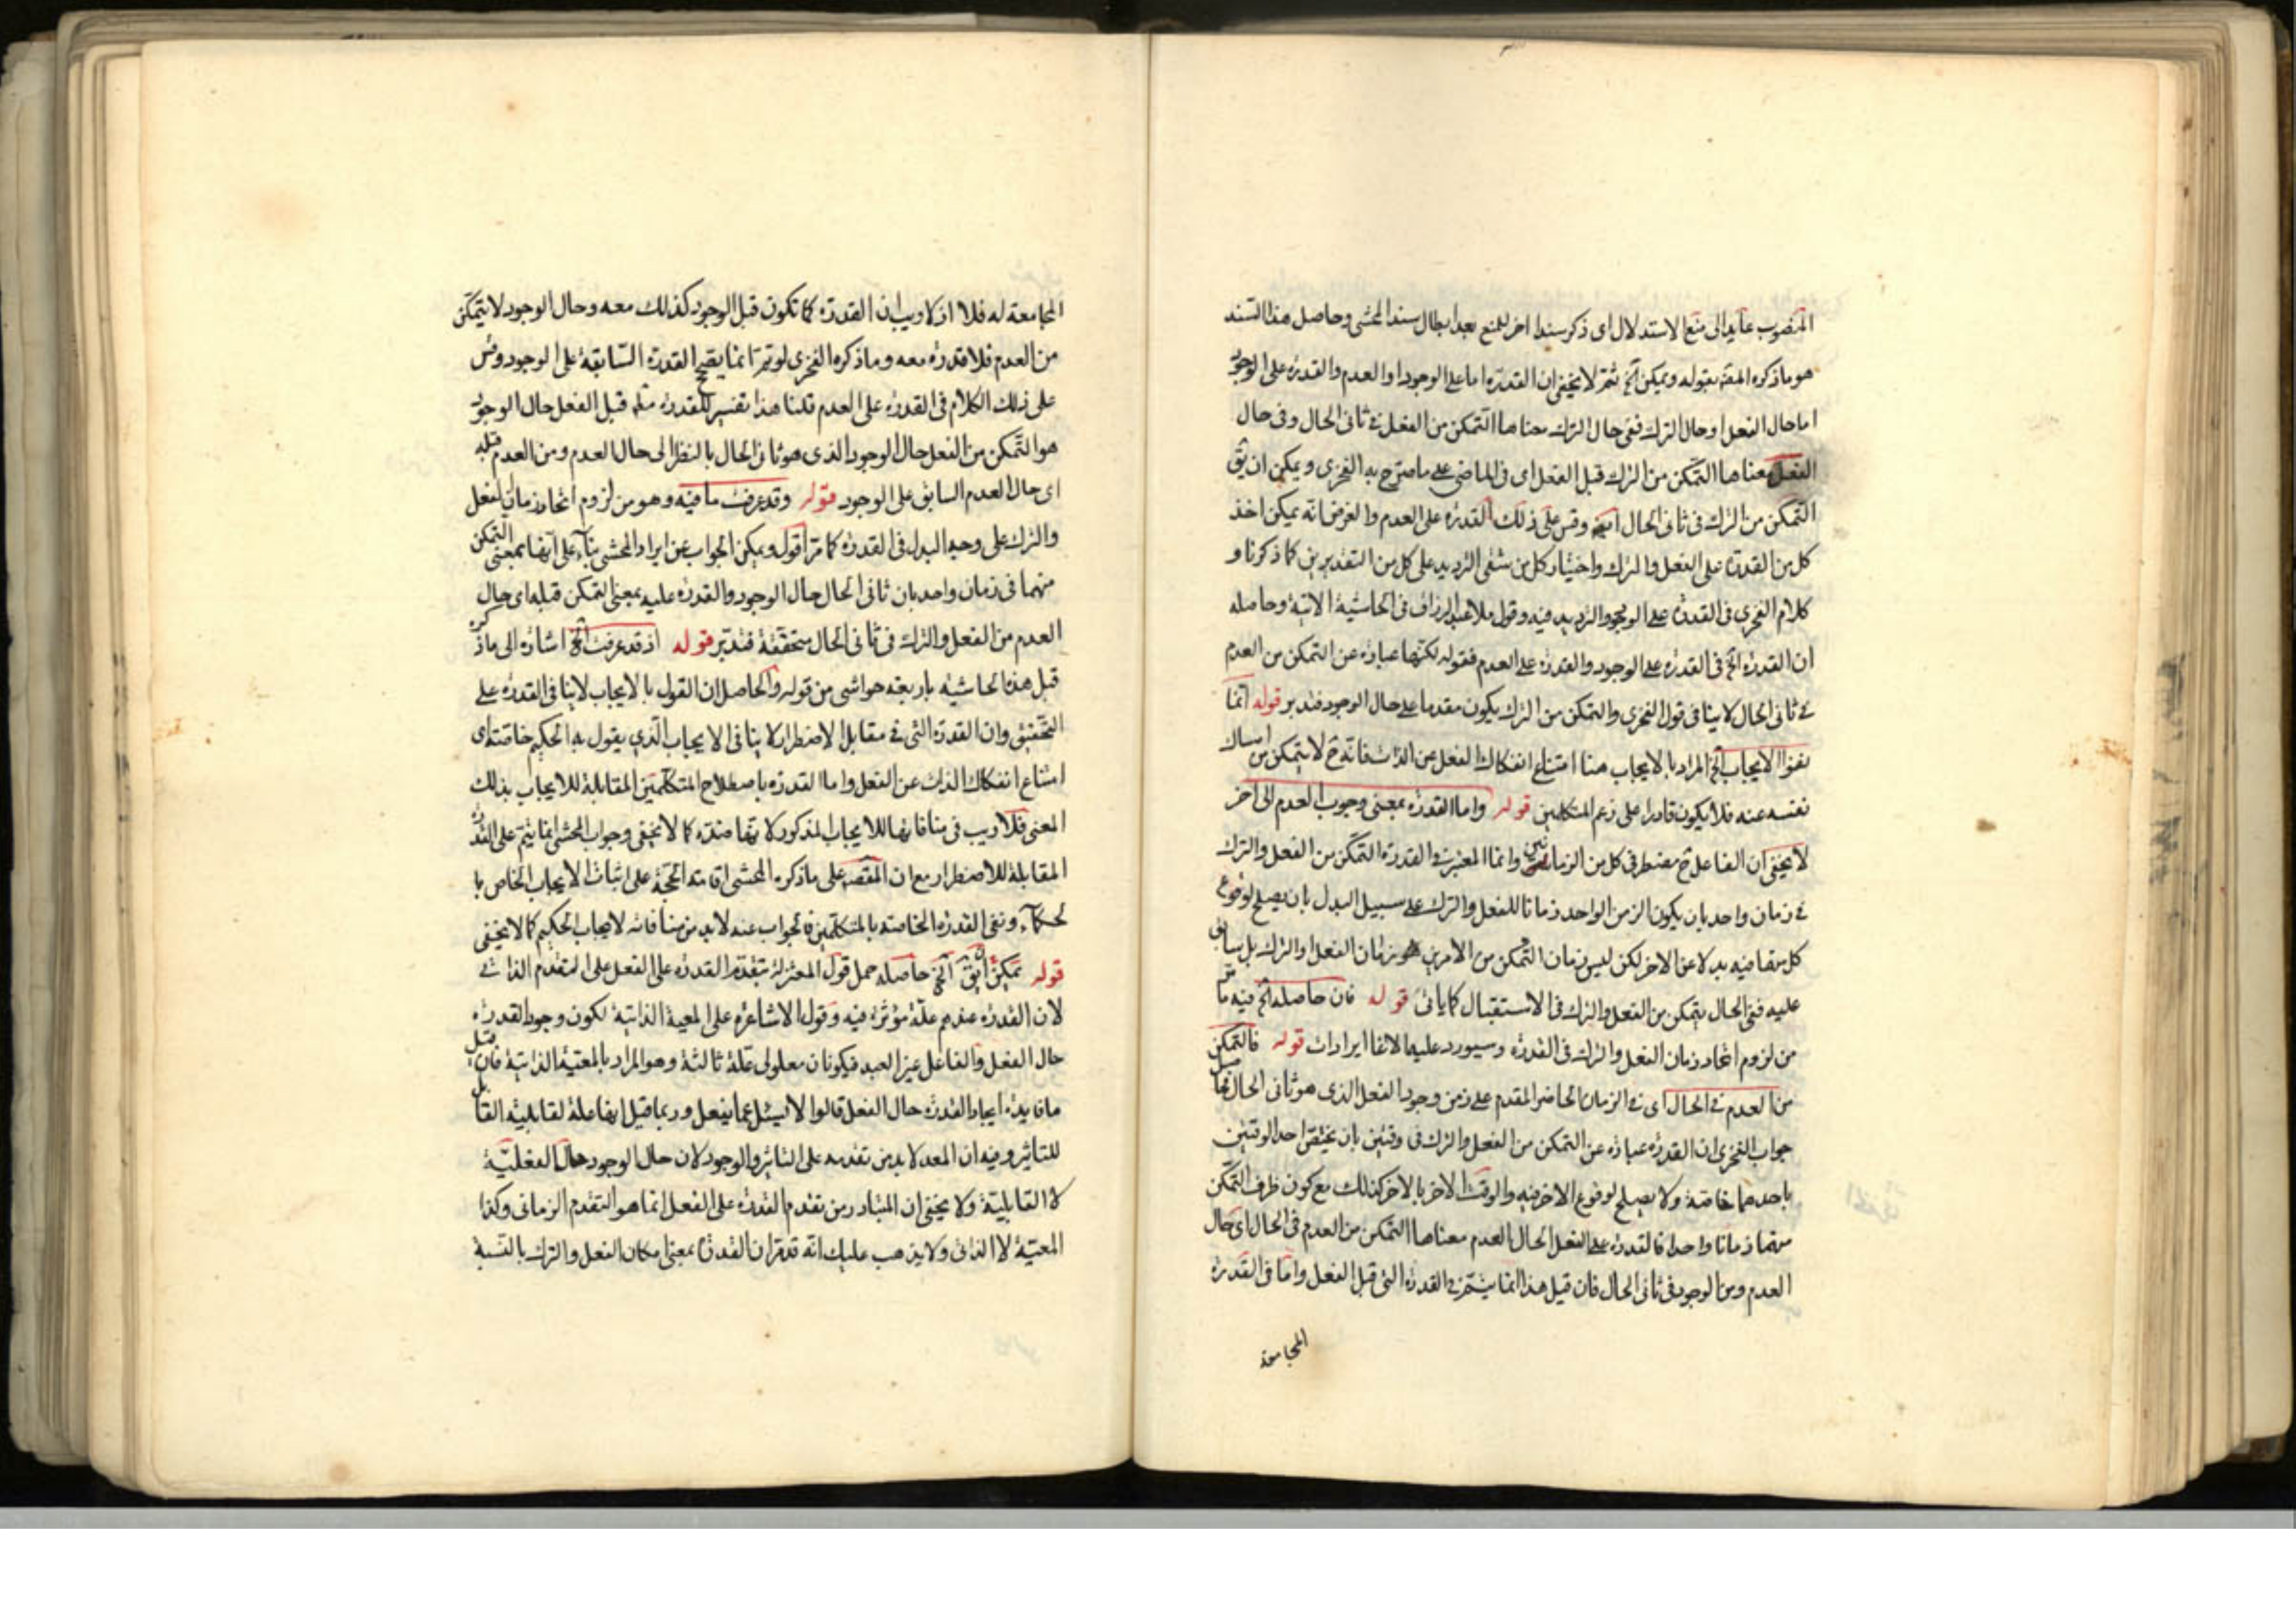 المنصوب عايد الى منع الاستدلال اى ذكر سندا اخر للمنع بعد ابطال سند المحشى وحاصل هذا السند
هو ما ذكره المص بقوله ويمكن آلخ ثم لا يخفى ان القدرة اما على الوجود او العدم والقدرة على الوجود
اما حال الفعل او حال الترك ففى حال الترك معناها التمكن من الفعل فى ثانى الحال وفى حال
الفعل معناها التمكن من الترك قبل الفعل اى فى الماضى على ما صرح به الفخرى ويمكن ان يق
التمكن من الترك فى ثانى الحال ايضا وقس على ذلك القدرة على العدم والغرض انه يمكن اخذ
كل من القدرة على الفعل والترك واختيار كل من شقى الترديد على كل من التقديرين كما ذكرنا و
كلام الفخرى فى القدرة على الوجود والترديد فيه وقول ملا عبد الرزاق فى الحاشية الاتية وحاصله
ان القدرة الخ فى القدرة على الوجود والقدرة على العدم فقوله لكنها عبارة عن التمكن من العدم
فى ثانى الحال لا ينافى قول الفخرى والتمكن من الترك يكون مقدما على حال الوجود فتدبر قوله انما
نفوا الايجاب آلخ المراد بالايجاب هنا امتناع انفكاك الفعل عن الذات فانه ح لا يتمكن من امساك
نفسه عنه فلا يكون قادرا على زعم المتكلمين قوله واما القدرة بمعنى وجوب العدم الى اخر
لا يخفى ان الفاعل ح مضطر فى كل من الزمانين وانما المعتبر فى القدرة التمكن من الفعل والترك
فى زمان واحد بان يكون الزمن الواحد زمانا للفعل والترك على سبيل البدل بان يصلح لوقوع
كل منهما فيه بدلا عن الاخر لكن ليس زمان التمكن من الامرين هو زمان الفعل او الترك بل سابق
عليه ففى الحال يتمكن من الفعل والترك فى الاستقبال كما ياتى قوله فان حاصله آلخ فيه ما مر
من لزوم اتحاد زمان الفعل والترك فى القدرة وسيورد عليها لاتفا ايرادات قوله فالتمكن
من العدم فى الحال اى فى الزمان الحاضر المقدم على زمن وجود الفعل الذى هو ثانى الحال
جواب الفخرى ان القدرة عبارة عن التمكن من الفعل والترك فى وقتين بان يختص احد الوقتين
باحدهما خاصة ولا يصلح لوقوع الاخر فيه والوقت الاخر بالاخر كذلك مع كون ظرف التمكن
منهما زمانا واحدا فالقدرة على الفعل الحال العدم معناها التمكن من العدم فى الحال اى حال
العدم ومن الوجود فى ثانى الحال فان قيل هذا انما يتم فى القدرة التى قبل الفعل واما فى القدرة
المجامعة
المجامعة له فلا اذ لا ريب ان القدرة كما تكون قبل الوجود كذلك معه وحال الوجود لا يتمكن
من العدم فلا قدرة معه وما ذكره الفخرى لو تم انما يصح القدرة السابقة على الوجود وقس
على ذلك الكلام فى القدرة على العدم قلنا هذا تفسير للقدرة قبل الفعل حال الوجود
هو التمكن من الفعل حال الوجود الذى هو ثانى الحال بالنظر الى حال العدم ومن العدم قبله
اى حال العدم السابق على الوجود قوله وقد عرفت ما فيه وهو من لزوم اتحاد زمان الفعل
والترك على وجه البدل فى القدرة كما مر اقول ويمكن الجواب عن ايراد المحشى بناء على انها بمعنى التمكن
منهما فى زمان واحد بان ثانى الحال حال الوجود والقدرة عليه بمعنى التمكن قبله اى حال
العدم من الفعل والترك فى ثانى الحال متحققة فتدبر قوله اذ قد عرفت آلخ اشارة الى ما ذكره
قبل هذه الحاشية باربعة حواشى من قوله والحاصل ان القول بالايجاب لا ينافى القدرة على
التحقيق وان القدرة التى فى مقابل الاضطرار لا ينافى الايجاب الذى يقول به الحكيم خاصة اى
امتناع انفكاك الذات عن الفعل واما القدرة باصطلاح المتكلمين المقابلة للايجاب بذلك
المعنى فلا ريب فى منافاتها للايجاب المذكور لانها ضده كما لا يخفى وجواب المحشى انما يتم على القدرة
المقابلة للاضطرار مع ان المقصد على ما ذكره المحشى اقامة الحجة على اثبات الايجاب الخاص با
لحكماء ونفى القدرة الخاصة بالمتكلمين فالجواب عنه لا بد من منافاته لايجاب الحكيم كما لا يخفى
قوله يمكن ان يق آلخ حاصله حمل قول المعتزلة بتقدم القدرة على الفعل على التقدم الذاتى
لان القدرة عندهم علة مؤثرة فيه وقول الاشاعرة على المعية الذاتية لكون وجود القدرة
حال الفعل والفاعل غير العبد فيكونان معلولى علة ثالثة وهو المراد بالمعتية الذاتية فان قيل
ما فايدة ايجاد القدرة حال الفعل قالوا لا يسئل عما يفعل وربما قيل انها علة لقابلية القابل
للتاثير وفيه ان المعد لا بد من تقدمه على التاثير والوجود لان حال الوجود حال الفعلية
لا القابلية ولا يخفى ان المتبادر من تقدم القدرة على الفعل انما هو التقدم الزمانى وكذا
المعتية لا الذاتى ولا يذهب عليك انه قد مر ان القدرة بمعنى امكان الفعل والترك بالنسبة